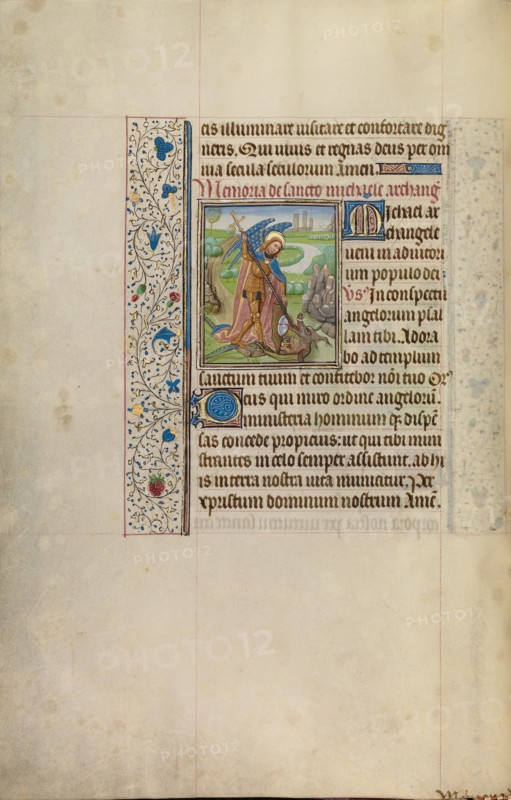 cis illuminare uisitare et confortare dig
neris. Qui uiuis et regnas deus per om
nia secula seculorum Amen.
Memoria de sancto michaele archang
Michael ar
changele
ueni in adiutori
um populo dei
Vs In conspectu
angelorum psal
lam tibi. Adora
bo ad templum
sanctum tuum et confitebor noi tuo Or
Deus qui miro ordine angeloru.
ministeria hominum q dispe
sas concede propicius: ut qui tibi mini
strantes in celo semper assistunt. ab hi
is in terra nostra uita muniatur. Per
xpristum dominum nostrum Ame.
PHOTO12